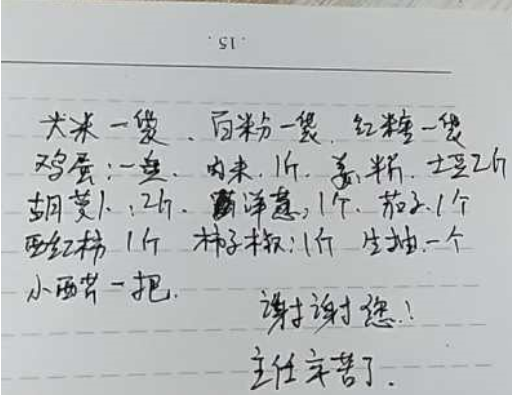 . 15 .
大米一袋、百粉一袋、红糖一袋
鸡蛋:一盘、肉末.1斤、姜.半斤.土豆2斤
胡萝卜:2斤、洋葱:1个、茄子.1个
西红柿1斤 柿子椒:1斤 生抽.一个
小西芹一把.
谢谢您!
主任辛苦了.